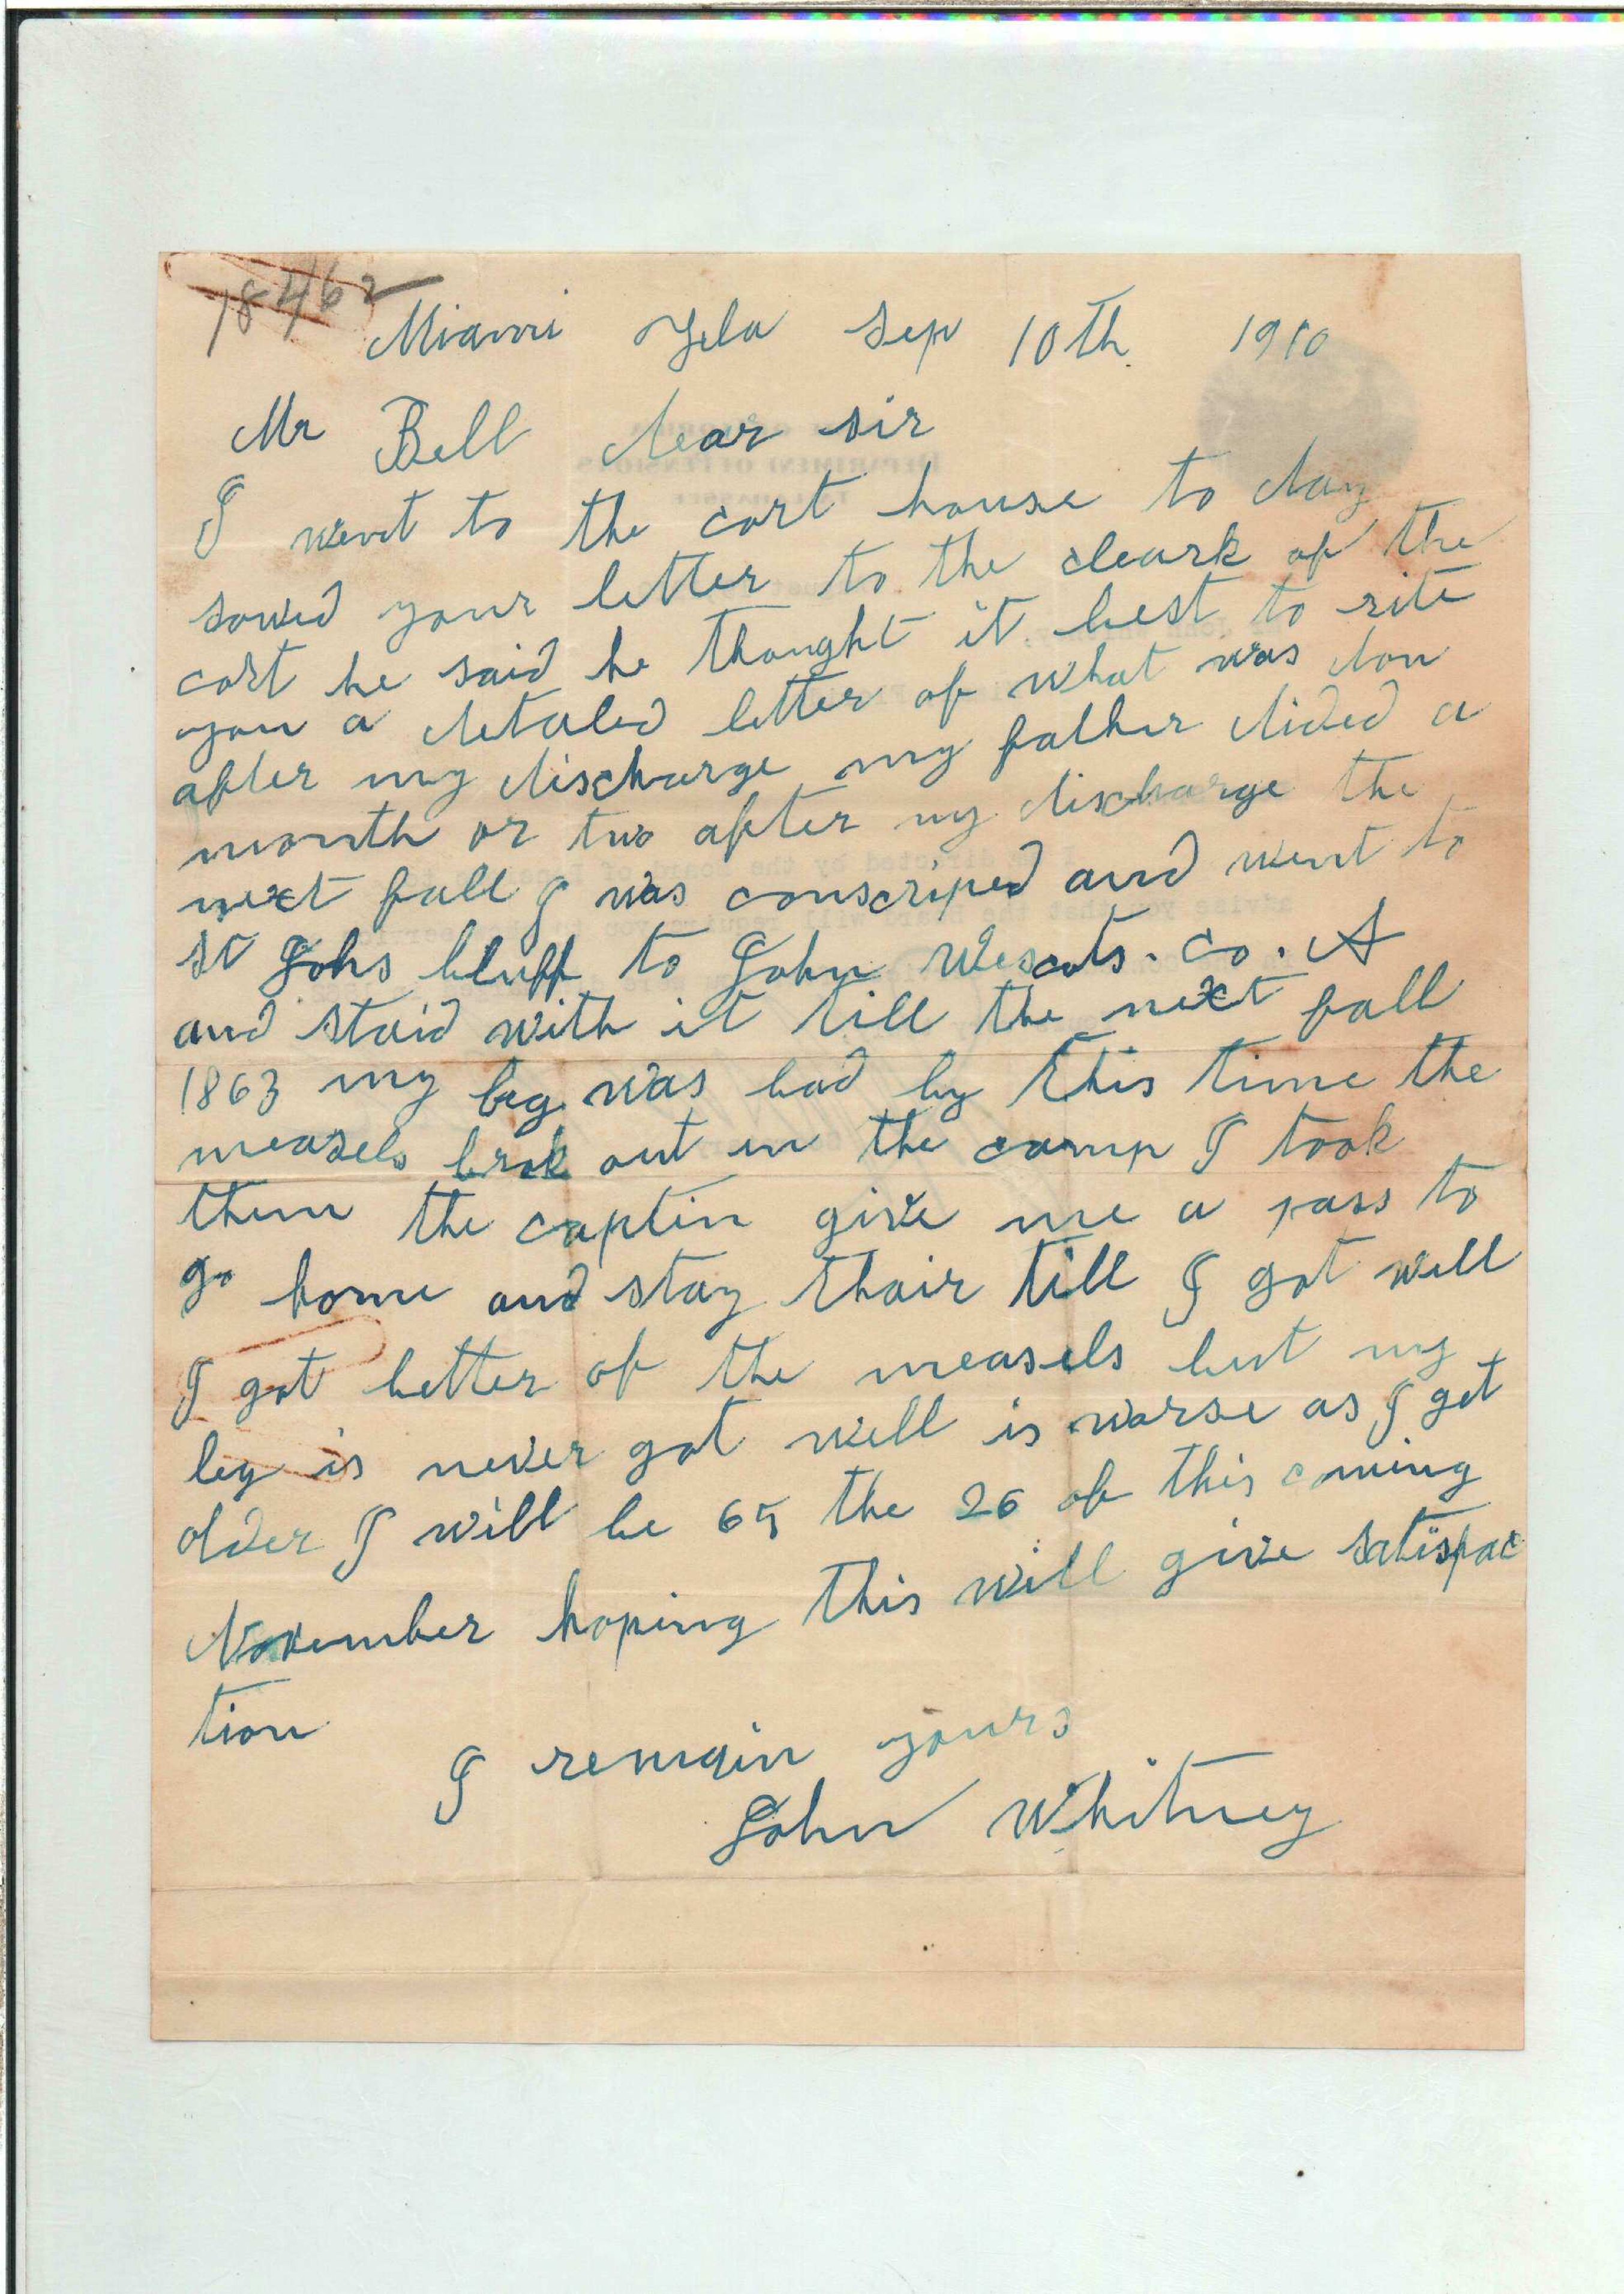 18462
Miami Fla Sep 10th 1910
Mr Bell dear sir
I went to the cort house to day
sowed your letter to the cleark of the
cort he said he thought it best to rite
you a detaled letter of what was don
after my discharge my father dided a
month or two after my discharge the
next fall I was conscriped and went to
St Johs bluff to John Wescots. Co. A
and staid with it till the next fall
1863 my leg was bad by this time the
measels brok out in the camp I took
them the captin give me a pass to
go home and stay thair till I got well
I got better of the measels but my
leg is never got well is warse as I get
older I will be 65 the 26 of this coming
November hoping this will give satisfac
tion
I remain yours
John Whitney